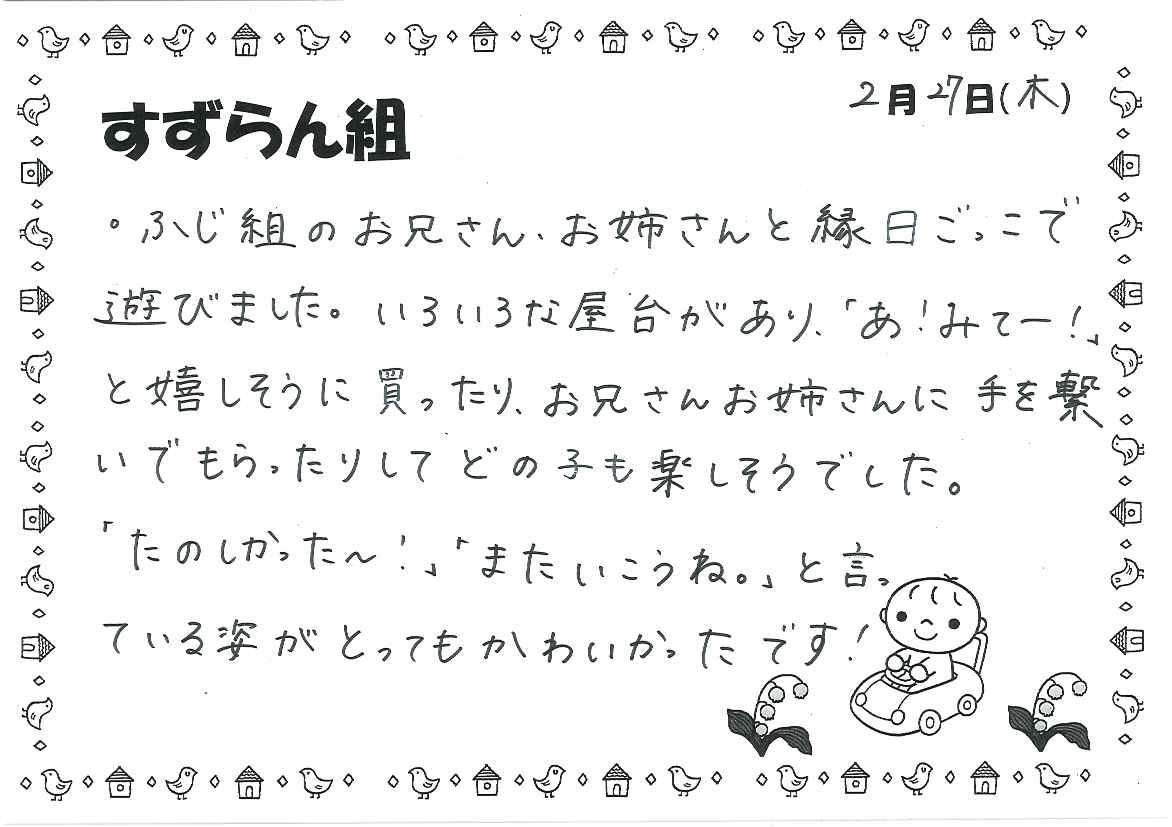 2月27日(木)
すずらん組
・ふじ組のお兄さん、お姉さんと縁日ごっこで
遊びました。いろいろな屋台があり、「あ!みてー!」
と嬉しそうに買ったり、お兄さんお姉さんに手を繋
いでもらったりしてどの子も楽しそうでした。
「たのしかった～!」「またいこうね。」と言っ
ている姿がとってもかわいかったです!